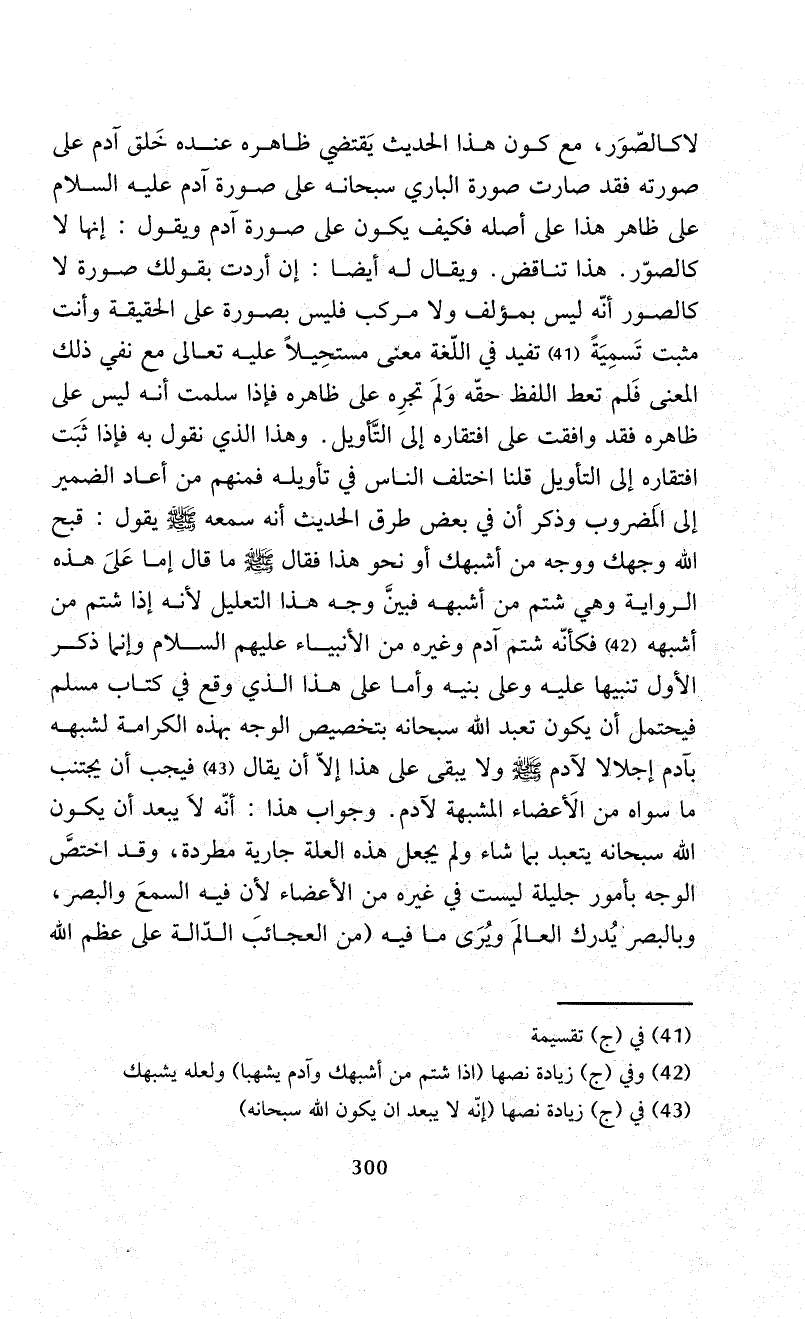 لاكالصّوَر، مع كون هذا الحديث يَقتضي ظاهره عنده خَلق آدم على
صورته فقد صارت صورة الباري سبحانه على صورة آدم عليه السلام
على ظاهر هذا على أصله فكيف يكون على صورة آدم ويقول : إنها لا
كالصوّر. هذا تناقض. ويقال له أيضا : إن أردت بقولك صورة لا
كالصور أنّه ليس بمؤلف ولا مركب فليس بصورة على الحقيقة وأنت
مثبت تَسمِيَةً (41) تفيد في اللّغة معنى مستحِيلاً عليه تعالى مع نفي ذلك
المعنى فَلم تعط اللفظ حقّه وَلَم تجرِه على ظاهره فإذا سلمت أنه ليس على
ظاهره فقد وافقت على افتقاره إلى التَّأويل. وهذا الذي نقول به فإذا ثَبَت
افتقاره إلى التأويل قلنا اختلف الناس في تأويله فمنهم من أعاد الضمير
إلى المَضروب وذكر أن في بعض طرق الحديث أنه سمعه ﷺ يقول : قبح
الله وجهك ووجه من أشبهك أو نحو هذا فقال ﷺ ما قال إما عَلَى هذه
الرواية وهي شتم من أشبهه فبينَّ وجه هذا التعليل لأنه إذا شتم من
أشبهه (42) فكأنّه شتم آدم وغيره من الأنبياء عليهم السلام وإنما ذكر
الأول تنبيها عليه وعلى بنيه وأما على هذا الذي وقع في كتاب مسلم
فيحتمل أن يكون تعبد الله سبحانه بتخصيص الوجه بهذه الكرامة لشبهه
بآدم إجلالا لآدم ﷺ ولا يبقى على هذا إلاّ أن يقال (43) فيجب أن يجتنب
ما سواه من الَأعضاء المشبهة لآدم. وجواب هذا : أنّه لاَ يبعد أن يكون
الله سبحانه يتعبد بما شاء ولم يجعل هذه العلة جارية مطردة، وقد اختصَّ
الوجه بأمور جليلة ليست في غيره من الأعضاء لأن فيه السمعَ والبصر،
وبالبصر يُدرك العالَم ويُرَى ما فيه (من العجائبَ الدّالة على عظم الله
(41) في (ج) تقسيمة
(42) وفي (ج) زيادة نصها (اذا شتم من أشبهك وآدم يشهبا) ولعله يشبهك
(43) في (ج) زيادة نصها (إنّه لا يبعد ان يكون الله سبحانه)
300